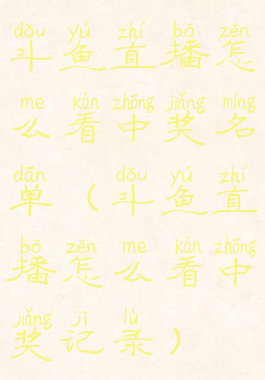 dǒu yú zhí bō zěn
斗鱼直播怎
me kàn zhōng jiǎng míng
么看中奖名
dān dǒu yú zhí
单（斗鱼直
bō zěn me kàn zhōng
播怎么看中
jiǎng jì lù
奖记录）